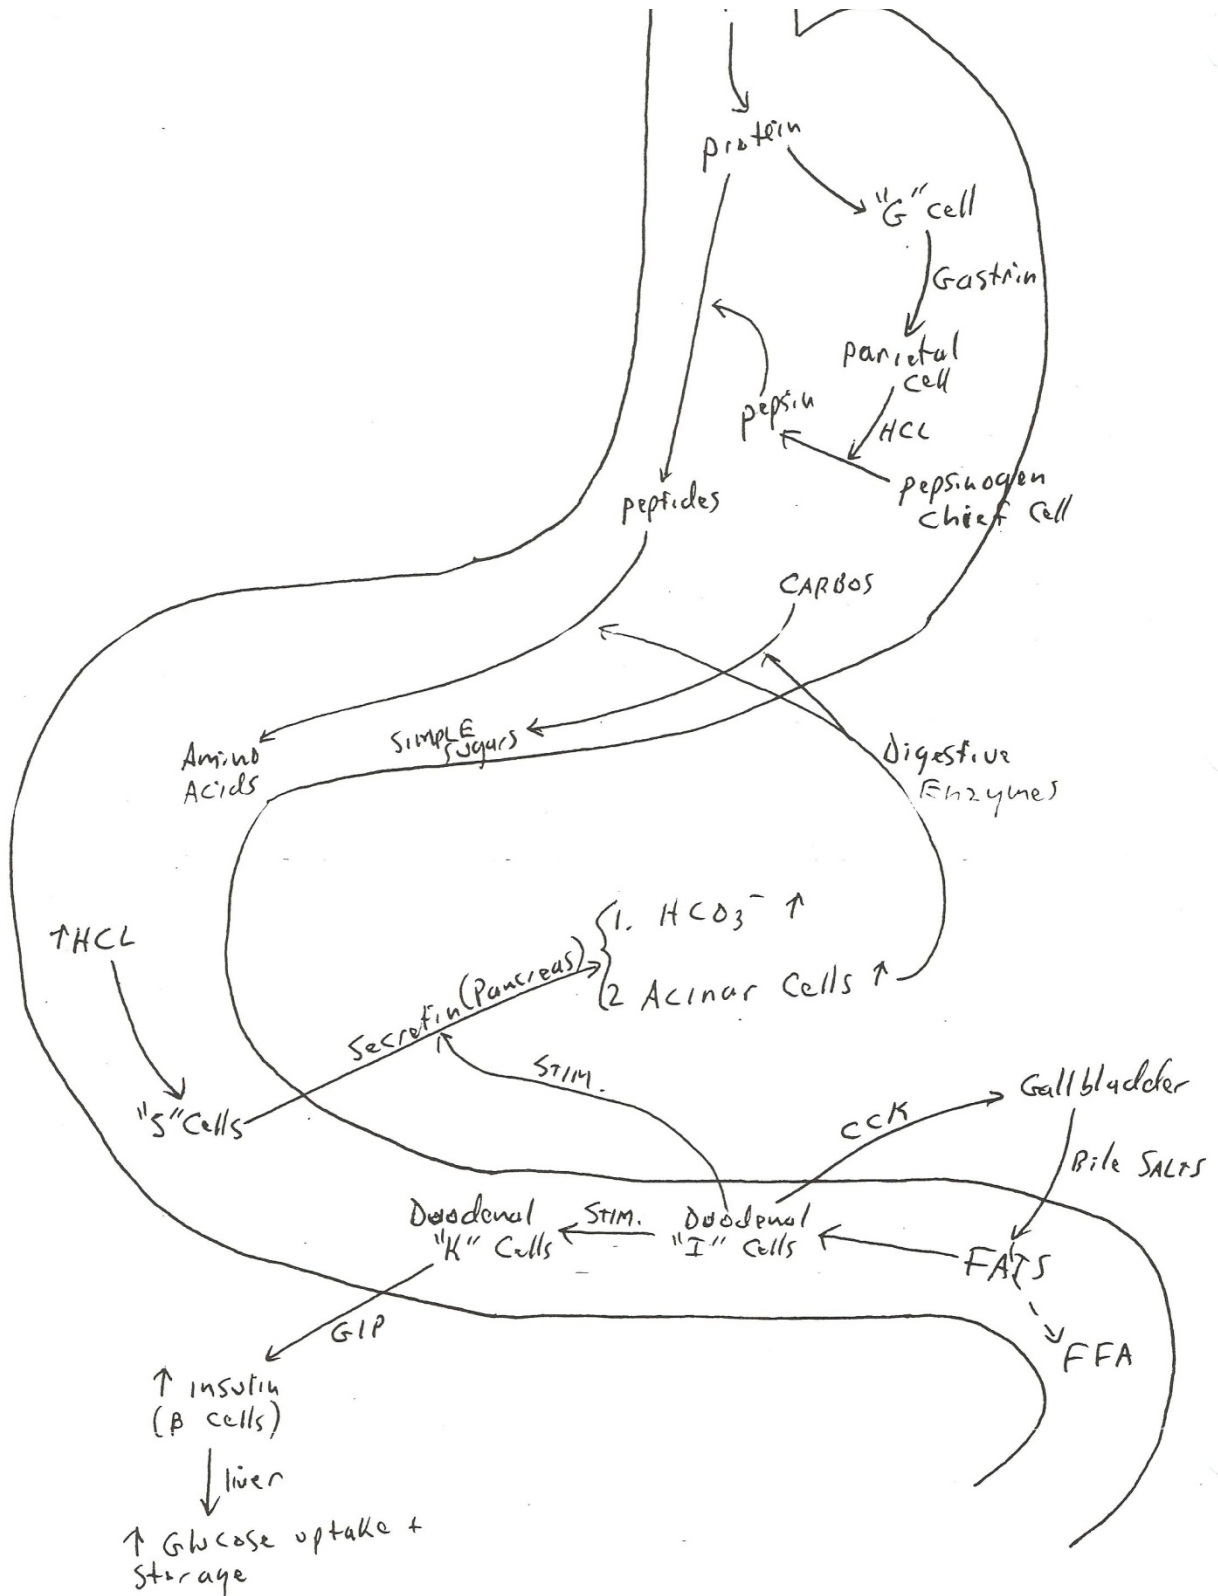 protein
"G" cell
Gastrin
parietal
cell
HCL
pepsin
pepsinogen
chief cell
peptides
CARBOS
SIMPLE
sugars
Amino
Acids
Digestive
Enzymes
↑HCL
1. HCO3- ↑
2 Acinar Cells ↑
Secretin (Pancreas)
"S" Cells
STIM.
CCK
Gallbladder
Bile SALTS
Duodenal
"K" Cells
STIM.
Duodenal
"I" Cells
FATS
FFA
GIP
↑ insulin
(β cells)
liver
↑ Glucose uptake +
storage